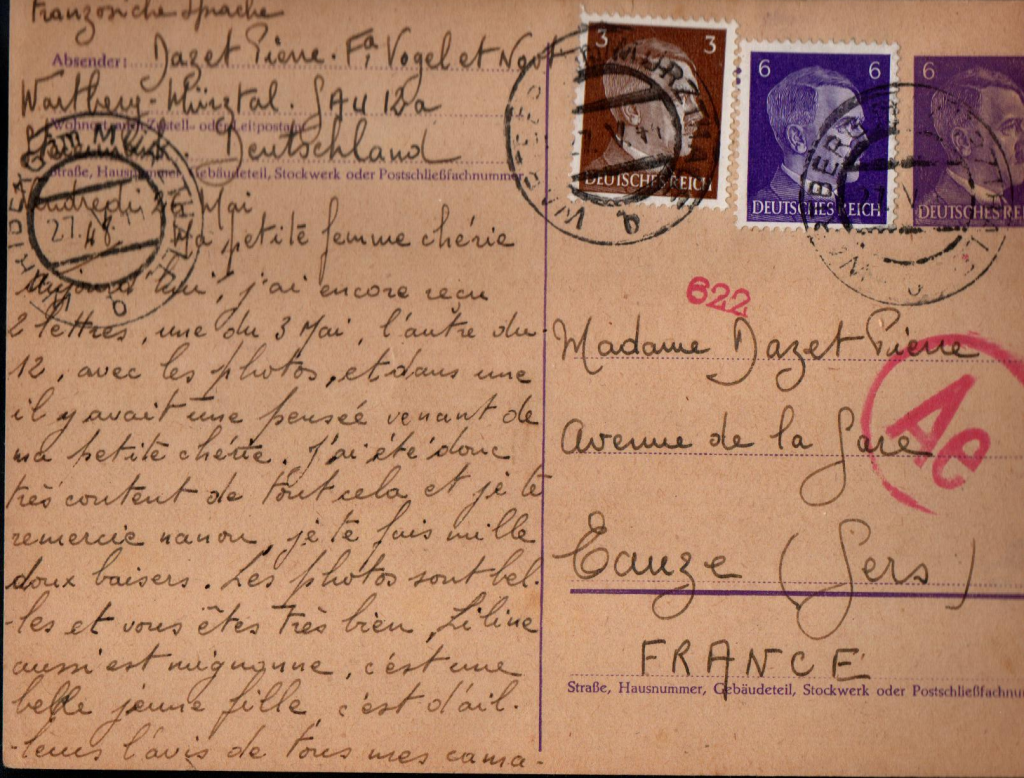 Französiche Sprache
Absender: Dazet Pierre. Fa, Vogel et Noot
Wartberg-Mürztal. GAU 12a
Wohnort, auch Zustell- oder Leitpostamt
Deutschland
Straße, Hausnummer, Gebäudeteil, Stockwerk oder Postschließfachnummer
Vendredi Mai
Ma petite femme chérie
Aujourd'hui, j'ai encore reçu
2 lettres, une du 3 Mai, l'autre du
12, avec les photos, et dans une
il y avait une penseé venant de
ma petite chérie. J'ai été donc
très content de tout cela et je te
remercie nanou, je te fais mille
doux baisers. Les photos sont bel-
-les et vous êtes très bien, Liline
aussi est mignonne, c'est une
belle jeune fille, c'est d'ail-
-leurs l'avis de tous mes cama-
3 3
DEUTSCHES REICH
6 6
DEUTSCHES REICH
6
DEUTSCHES REICH
27. 48
622
Ae
Madame Dazet Pierre
Avenue de la Gare
Eauze (Gers)
FRANCE
Straße, Hausnummer, Gebäudeteil, Stockwerk oder Postschließfachnu